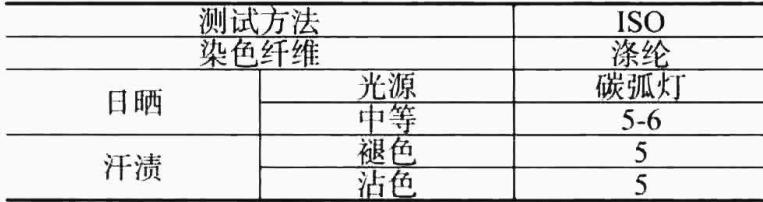 测试方法 ISO
染色纤维 涤纶
日晒 光源 碳弧灯
中等 5-6
汗渍 褪色 5
沾色 5